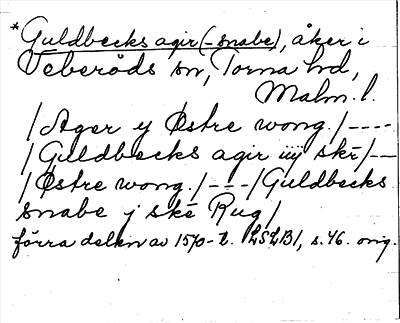 *Guldbecks agir (-snabe), åker i
Veberöds sn, Torna hd,
Malm. l.
/Ager ÿ Østre wong./----
/Guldbecks agir iiij skē/--
/Østre wong./---/Guldbecks
snabe j skē Rug/
förra delen av 1570-t. LSLB1, s. 46. orig.